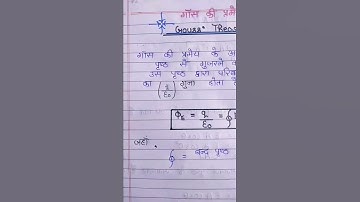 गॉस की प्रमे
Gauss' Theo
गॉस की प्रमेय के अ
पृष्ठ से गुजरने व
उस पृष्ठ द्वारा परिब
का (q/ε₀) गुना होता ह
Φ_E = q/ε₀ = ∮
जहाँ,
∮ = बन्द पृष्ठ